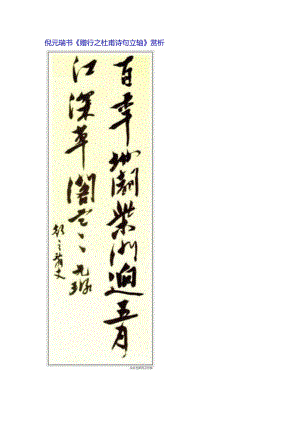 倪元瑞书《赠行之杜甫诗句立轴》赏析
百年地闢柴門迥五月
江深草閣寒 元璐